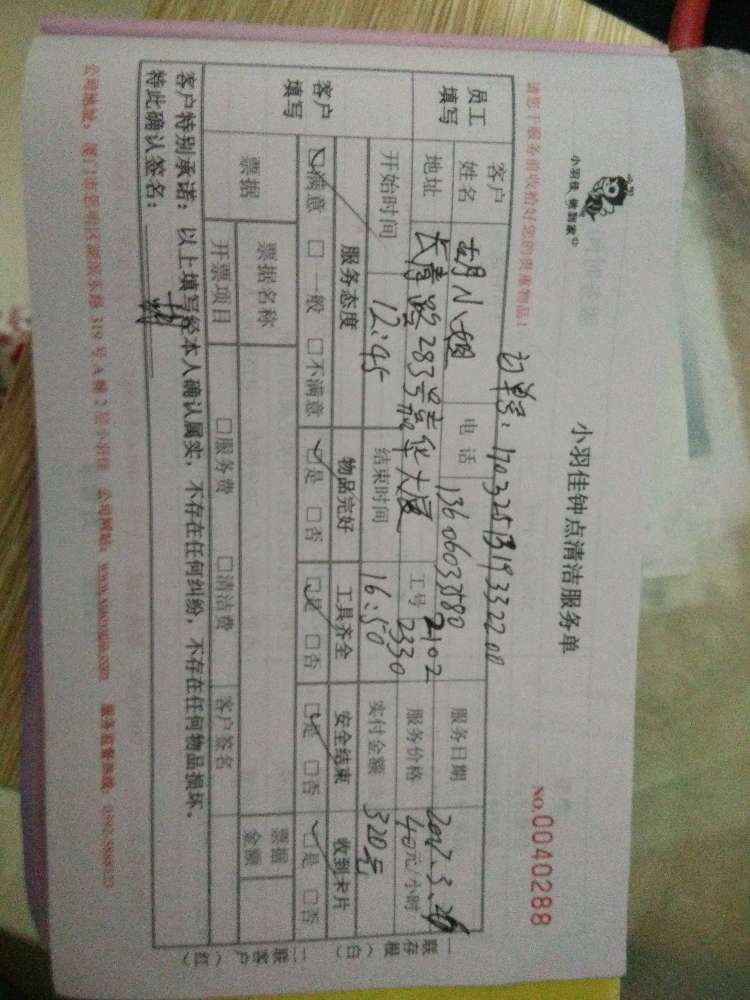 小羽佳 佣到家
小羽佳钟点清洁服务单
请您于服务前收拾好您的贵重物品!
NO.0040288
员工填写
客户姓名 胡小姐 电话 13606033580 服务日期
地址 长青路283号 华大厦 2102 工号 2330 服务价格 40元/小时
开始时间 12:45 结束时间 16:50 实付金额 320元
客户填写
服务态度 物品完好 工具齐全 安全结束 收到卡片
☑满意 □一般 □不满意 ☑是 □否 ☑是 □否 ☑是 □否 ☑是 □否
票据 票据名称 □服务费 □清洁费 票据金额
开票项目 客户签名
客户特别承诺:以上填写经本人确认属实,不存在任何纠纷,不存在任何物品损坏。
特此确认签名:
公司地址:厦门市思明区湖滨东路 319 号 A 幢 2 层小羽佳 公司网站: 服务监督热线:
一联存根(白) 二联客户(红)